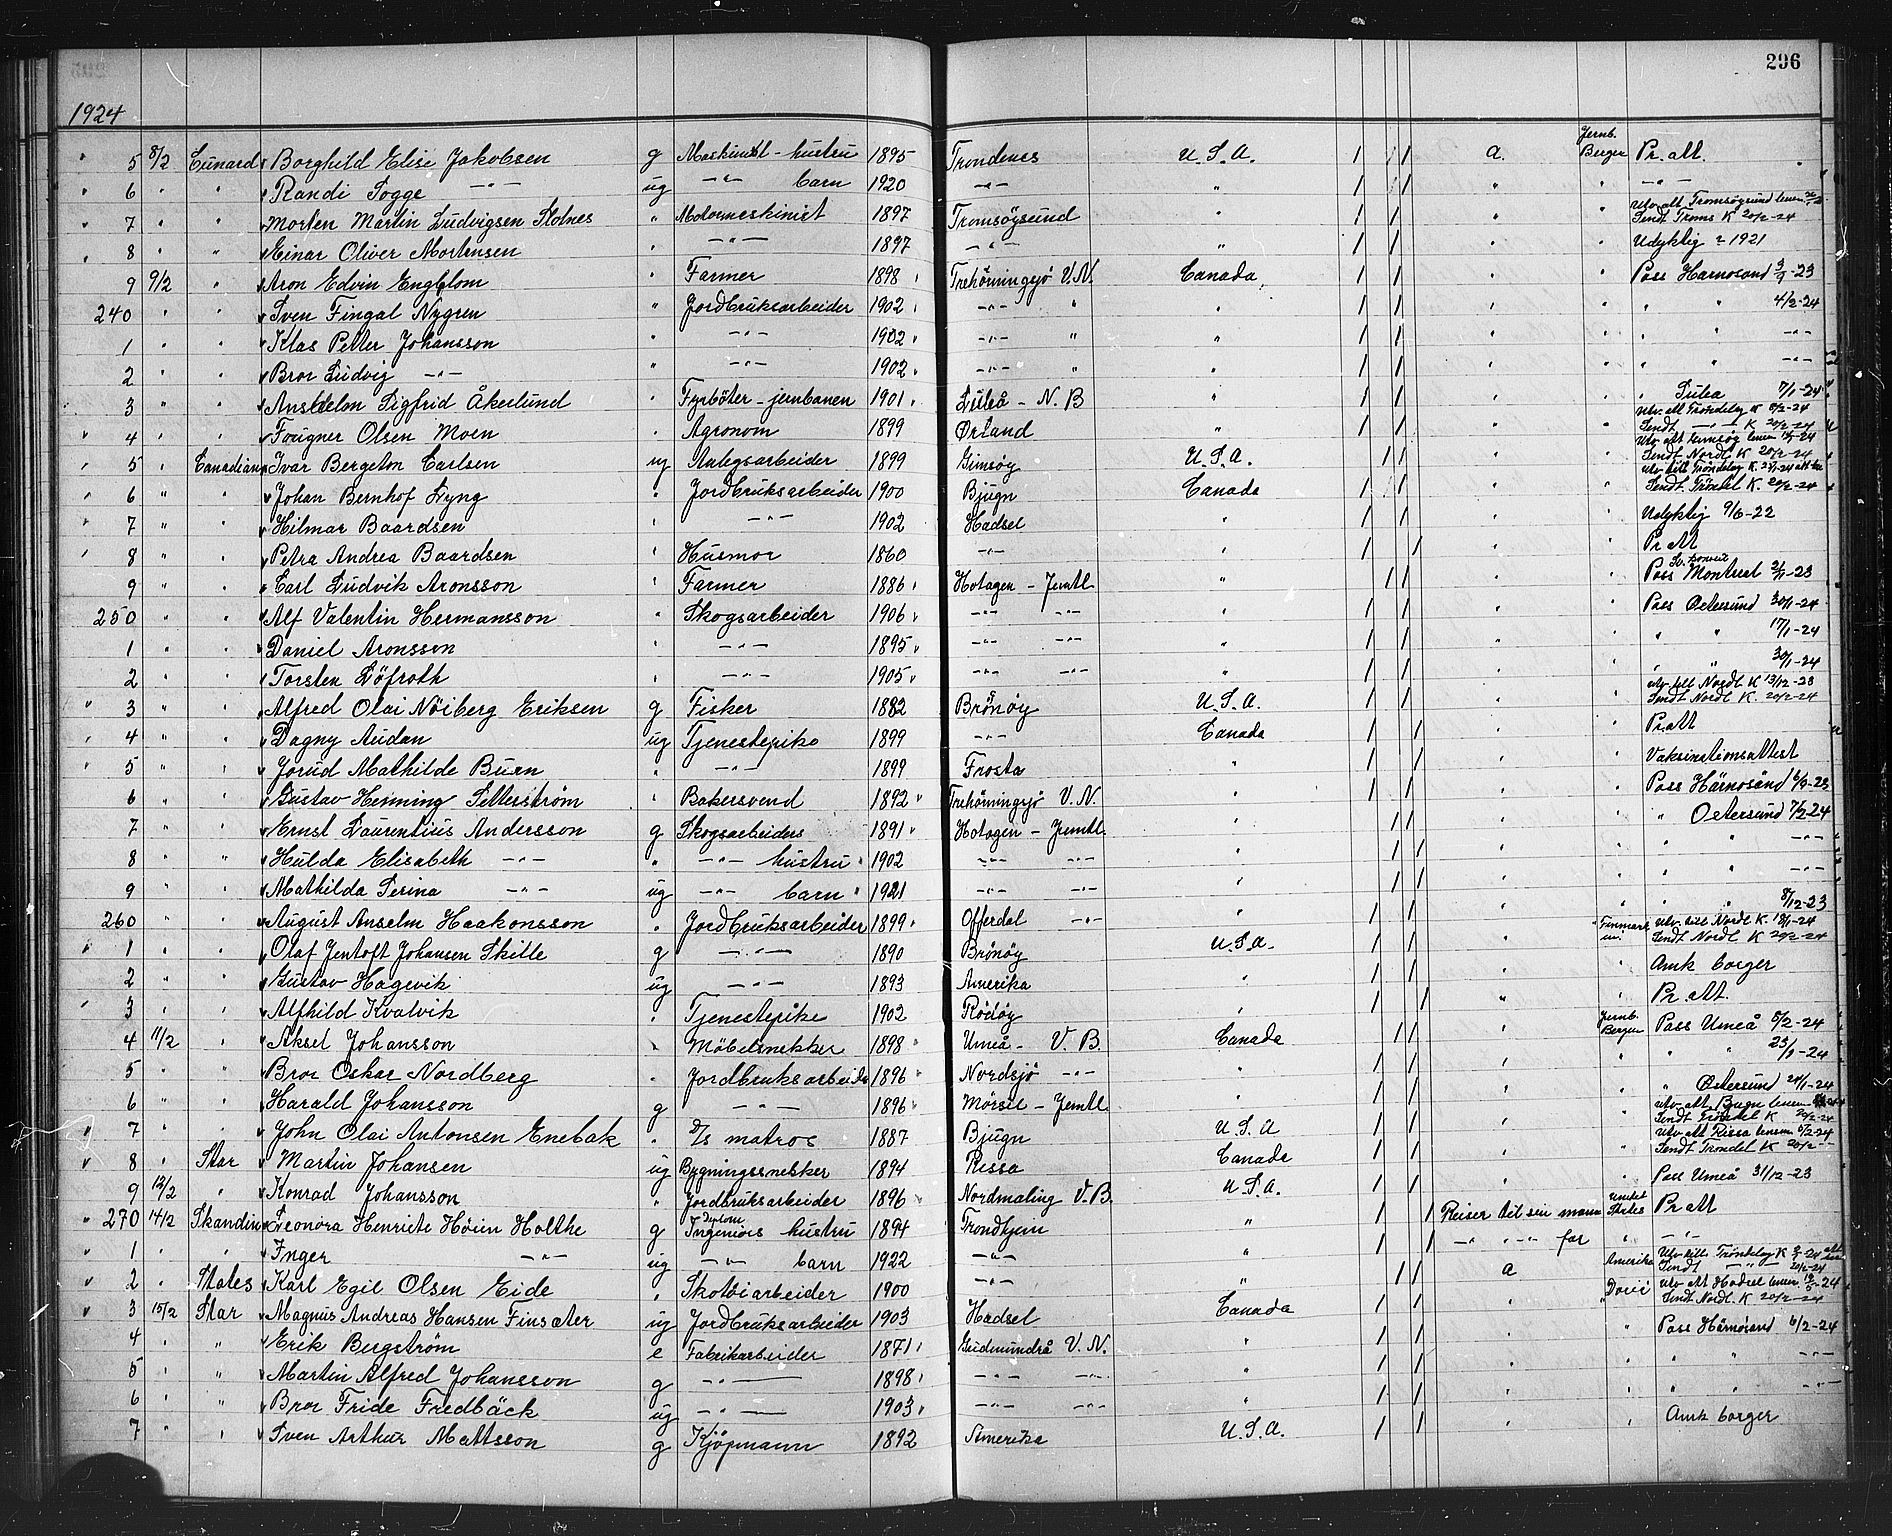 296
1924
" 5 8/2 Cunard Borghild Elise Jakobsen g Maskinist - hustru 1895 Trondenes U.S.A. 1 1 1 a. Jernb. Bergen Pr. att.
" 6 " " Randi Sogge —"— ug —"— barn 1920 —"— " 1 1 1 " " —"—
" 7 " " Morten Martin Ludvigsen Slotnes " Motormaskinist 1897 Tromsøysund " 1 1 1 " " Utv. att Tromsøysund Sendt Troms K 20/2-24
" 8 " " Einar Oliver Mortensen " —"— 1897 —"— " 1 1 " " Udyktig 1921
9 9/2 " Aron Edvin Engblom " Farmer 1898 Trehörningsjö V.N. Canada 1 1 " " Pass Harnosand 3/9-23
240 " " Sven Fingal Nygren " Jordbruksarbeider 1902 —"— " " 1 1 " " " " 4/2-24
1 " " Klas Petter Johansson " —"— 1902 —"— " " 1 1 " " " " —"—
2 " " Bror Ludvig —"— " —"— 1902 —"— " " 1 1 " " " " —"—
3 " " Sigfrid Åkerlund " Fyrböter - jernbanen 1901 Luleå - N.B " 1 1 " " " Lulea 7/1-24
" 4 " " Fougner Olsen Moen " Agronom 1899 Ørland " 1 1 " " Utv. att Tröndelag K 8/2-24 Sendt —"— K 20/2-24
" 5 " Canadian Ivar Bergeton Carlsen ug Anlegsarbeider 1899 Gimsøy U.S.A. 1 1 " " Sendt Nordl. K 20/2-24
" 6 " " Johan Bernhof Lyng " Jordbruksarbeider 1900 Bjugn Canada 1 1 " " Utv till Tröndelag K. Sendt Tröndel K. 20/2-24
" 7 " " Hilmar Baardsen " —"— 1902 Hadsel " 1 1 " " Udyktig 9/6-22
" 8 " " Petra Andrea Baardsen " Husmor 1860 —"— " 1 1 " " Pr. att
9 " " Carl Ludvik Aronsson " Farmer 1886 Hotagen - Jemtl " 1 1 " " Pass Montreal -23
250 " " Alf Valentin Hermansson " Skogsarbeider 1906 —"— —"— " 1 1 " " Pass Østersund 30/1-24
1 " " Daniel Aronsson " —"— 1895 —"— —"— " 1 1 " " " " 17/1-24
2 " " Torsten Löfroth " —"— 1905 —"— —"— " 1 1 " " " " 30/1-24
" 3 " " Alfred Olai Nöiberg Eriksen g Fisker 1882 Brönöy U.S.A. 1 1 " " utv. till Nordl K 13/12-23 Sendt Nordl K. 20/2-24
" 4 " " Dagny Audan ug Tjenestepike 1899 —"— Canada 1 1 " " Pr att
" 5 " " Jorud Mathilde Buan " —"— 1899 Frosta " 1 1 " " Vaksinationsattest
6 " " Gustav Henning Setterström " Bakersvend 1892 Trehörningsjö V.N. " 1 1 " " Pass Härnosand 6/9-23
7 " " Ernst Laurentius Andersson g Skogsarbeider 1891 Hotagen - Jemtl. " 1 1 " " " Ostersund 7/2-24
8 " " Hulda Elisabeth —"— " —"— hustru 1902 —"— —"— " 1 1 " " " " —"—
9 " " Mathilda Serina —"— ug —"— barn 1921 —"— —"— " 1 1 " " " " —"—
260 " " August Anselm Haakonsson " Jordbruksarbeider 1899 Offerdal —"— " 1 1 " " " " 8/12-23
" 1 " " Olaf Jentoft Johansen Skille g —"— 1890 Brönöy U.S.A. 1 1 " Finmark utv. till Nordl K. 18/1-24 Sendt Nordl K 20/2-24
2 " " Gustav Hagevik ug —"— 1893 Amerika " 1 1 " " Amk borger
" 3 " " Alfhild Kvalvik " Tjenestepike 1902 Rödöy " 1 1 " " Pr. att.
4 11/2 " Aksel Johansson " Möbelsnekker 1898 Umeå - V.B. Canada 1 1 " Jernb. Bergen Pass Umeå 5/2-24
5 " " Bror Oskar Nordberg " Jordbruksarbeider 1896 Nordsjö —"— " 1 1 " " " " 23/1-24
6 " " Harald Johansson g —"— 1896 Mörsil - Jemtl. " 1 1 " " " Østersund 24/1-24
" 7 " " John Olai Antonsen Enebak " D/s matros 1887 Bjugn U.S.A 1 1 " " utv. att Bjugn Sendt Tröndel K 20/2-24
" 8 " Star Martin Johansen ug Bygningssnekker 1894 Rissa Canada 1 1 " " Utv att Rissa lensm 5/2-24 Sendt Tröndel K 20/2
9 12/2 " Konrad Johansson " Jordbruksarbeider 1896 Nordmaling V.B. U.S.A. 1 1 " " Pass Umeå 31/12-23
" 270 14/2 Skandin Leonora Henriete Höien Holthe g Diplom Ingeniörs hustru 1894 Trondhjem " 1 1 Reiser til sin mann United States Pr att
" 1 " " Inger —"— ug —"— barn 1922 —"— " 1 1 —"— —"— far " —"—
" 2 " States Karl Egil Olsen Eide " Skotöiarbeider 1900 —"— " 1 1 a Amerika Utv till Tröndelag K Sendt —"— 20/2-24
" 3 15/2 Star Magnus Andreas Hansen Finsæter ug Jordbruksarbeider 1903 Hadsel Canada 1 1 " Dovre utv. att Hadsel lensm -24 Sendt Nordl. K 20/2-24
4 " " Erik Bergström e Fabrikarbeider 1871 Gudmundrå V.N. " 1 1 " " Pass Härnösand 6/2-24
5 " " Martin Alfred Johansson g —"— 1898 —"— —"— " 1 1 " " " " —"—
6 " " Bror Fride Fredbäck ug —"— 1903 —"— —"— " 1 1 " " " " —"—
7 " " Sven Arthur Mattsson g Kjöpmann 1892 Amerika U.S.A. 1 1 " " Amk borger